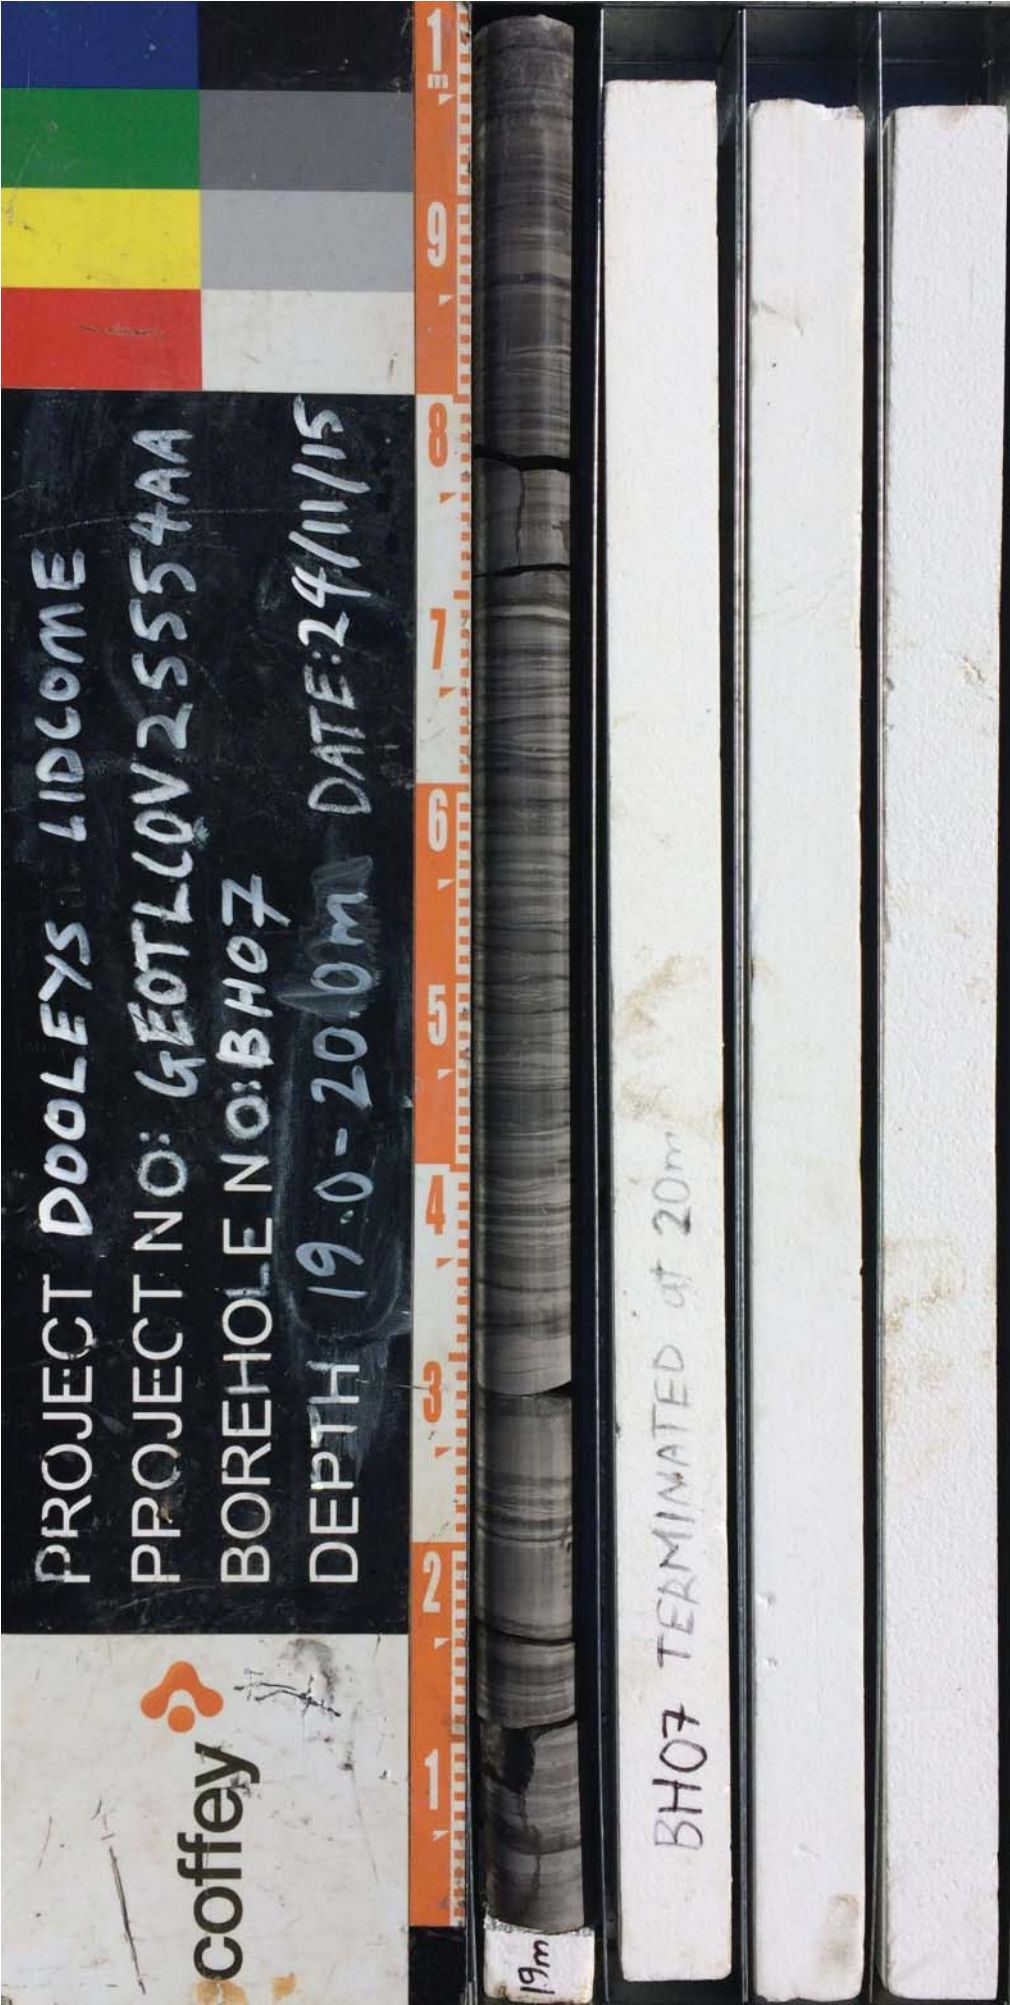 PROJECT DOOLEYS LIDCOME
PPOJECT NO: GEOTLCOV25554AA
BOREHOLE NO: BH07
DEPTH 19.0-20.0m DATE: 24/11/15
coffey
1m
9
8
7
6
5
4
3
2
1
19m
BH07 TERMINATED at 20m